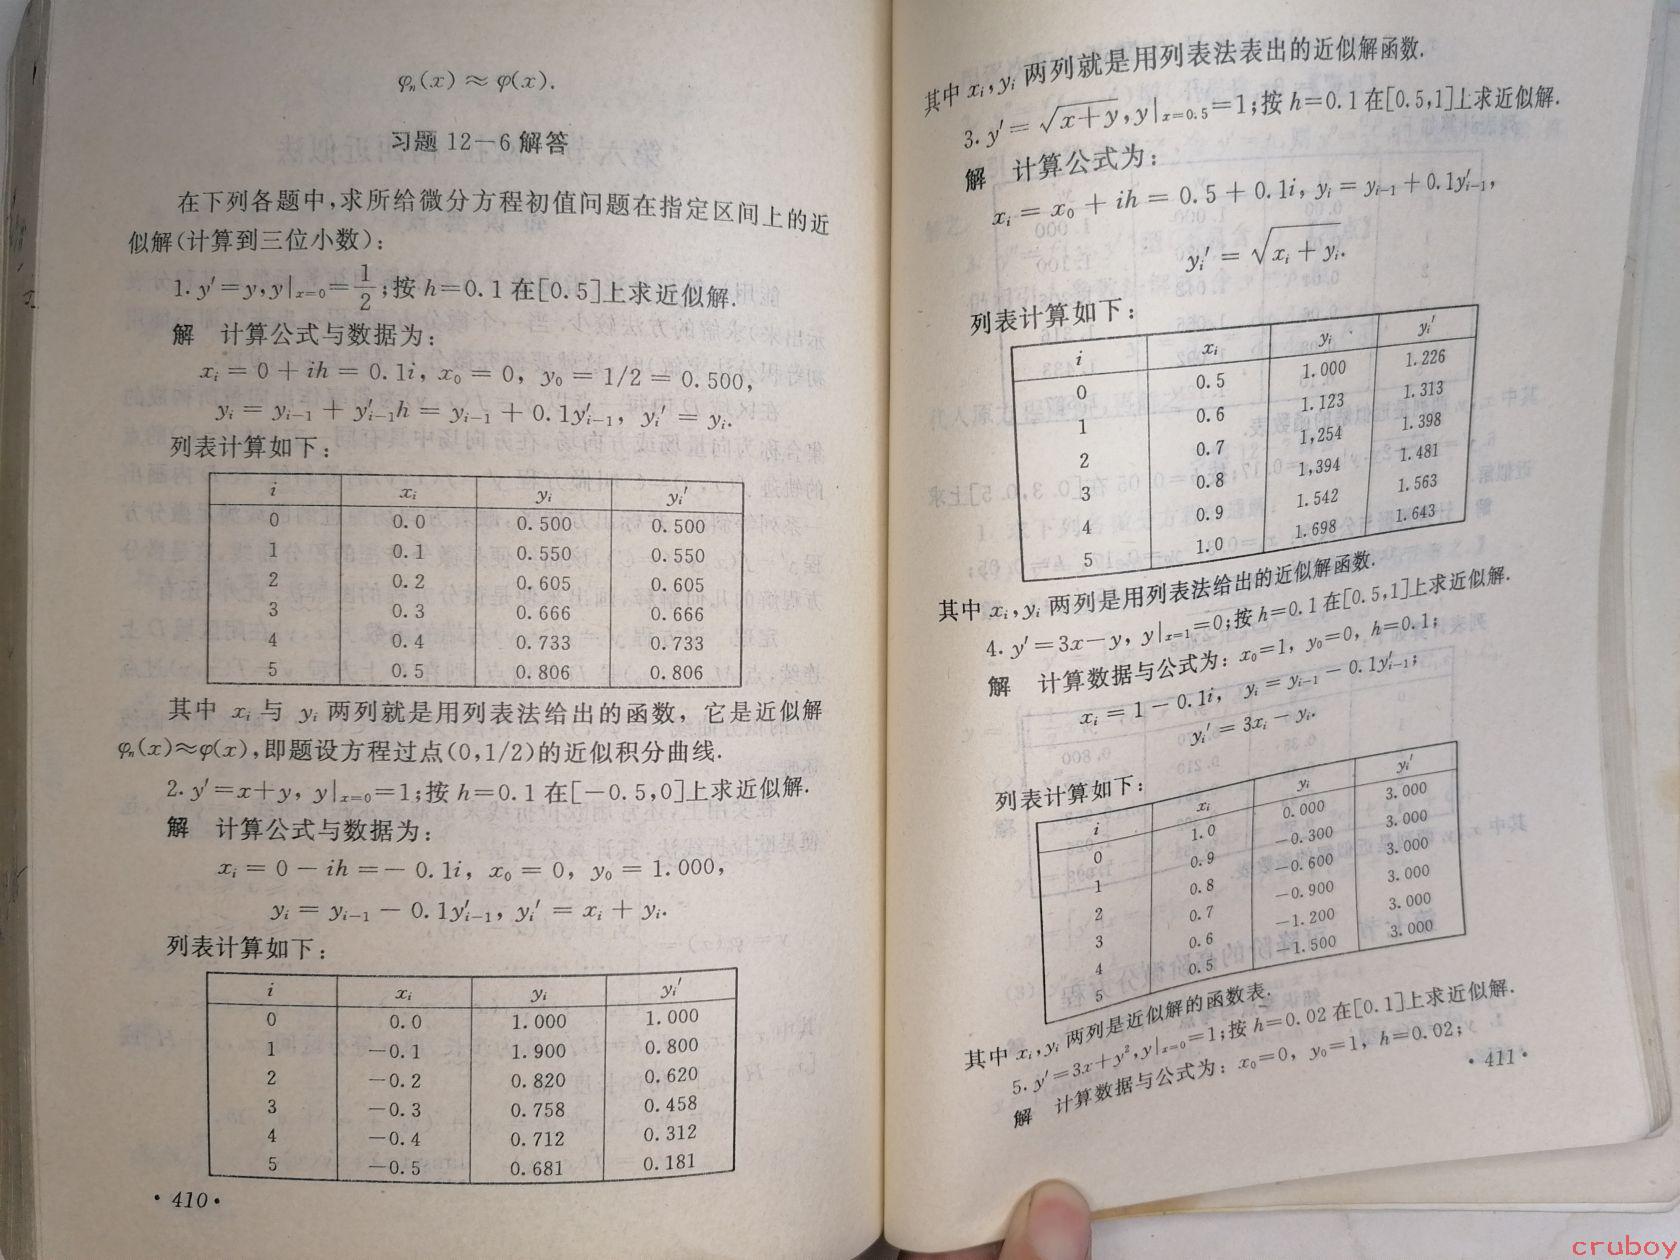 φₙ(x)≈φ(x).
习题 12—6 解答
在下列各题中,求所给微分方程初值问题在指定区间上的近
似解(计算到三位小数):
1. y′=y,y|ₓ₌₀=1/2;按 h=0.1 在[0.5]上求近似解.
解 计算公式与数据为:
xᵢ = 0 + ih = 0.1i, x₀ = 0, y₀ = 1/2 = 0.500,
yᵢ = yᵢ₋₁ + y′ᵢ₋₁h = yᵢ₋₁ + 0.1y′ᵢ₋₁, yᵢ′ = yᵢ.
列表计算如下:
i xᵢ yᵢ yᵢ′
0 0.0 0.500 0.500
1 0.1 0.550 0.550
2 0.2 0.605 0.605
3 0.3 0.666 0.666
4 0.4 0.733 0.733
5 0.5 0.806 0.806
其中 xᵢ 与 yᵢ 两列就是用列表法给出的函数, 它是近似解
φₙ(x)≈φ(x),即题设方程过点(0,1/2)的近似积分曲线.
2. y′=x+y, y|ₓ₌₀=1;按 h=0.1 在[−0.5,0]上求近似解.
解 计算公式与数据为:
xᵢ = 0 − ih = − 0.1i, x₀ = 0, y₀ = 1.000,
yᵢ = yᵢ₋₁ − 0.1y′ᵢ₋₁, yᵢ′ = xᵢ + yᵢ.
列表计算如下:
i xᵢ yᵢ yᵢ′
0 0.0 1.000 1.000
1 −0.1 1.900 0.800
2 −0.2 0.820 0.620
3 −0.3 0.758 0.458
4 −0.4 0.712 0.312
5 −0.5 0.681 0.181
· 410 ·
其中 xᵢ,yᵢ 两列就是用列表法表出的近似解函数.
3. y′=√(x+y),y|ₓ₌₀.₅=1;按 h=0.1 在[0.5,1]上求近似解.
解 计算公式为:
xᵢ = x₀ + ih = 0.5 + 0.1i, yᵢ = yᵢ₋₁ + 0.1y′ᵢ₋₁,
yᵢ′ = √(xᵢ + yᵢ).
列表计算如下:
i xᵢ yᵢ yᵢ′
0 0.5 1.000 1.226
1 0.6 1.123 1.313
2 0.7 1,254 1.398
3 0.8 1,394 1.481
4 0.9 1.542 1.563
5 1.0 1.698 1.643
其中 xᵢ,yᵢ 两列是用列表法给出的近似解函数.
4. y′=3x−y, y|ₓ₌₁=0;按 h=0.1 在[0.5,1]上求近似解.
解 计算数据与公式为: x₀=1, y₀=0, h=0.1;
xᵢ = 1 − 0.1i, yᵢ = yᵢ₋₁ − 0.1y′ᵢ₋₁;
yᵢ′ = 3xᵢ − yᵢ.
列表计算如下:
i xᵢ yᵢ yᵢ′
0 1.0 0.000 3.000
1 0.9 −0.300 3.000
2 0.8 −0.600 3.000
3 0.7 −0.900 3.000
4 0.6 −1.200 3.000
5 0.5 −1.500 3.000
其中 xᵢ,yᵢ 两列是近似解的函数表.
5. y′=3x+y²,y|ₓ₌₀=1;按 h=0.02 在[0.1]上求近似解.
解 计算数据与公式为: x₀=0, y₀=1, h=0.02;
· 411 ·
cruboy